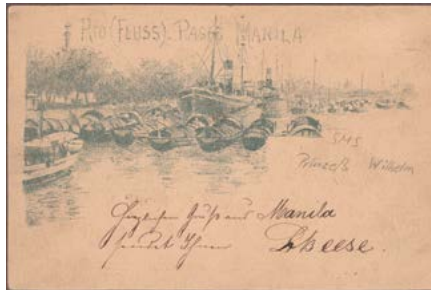 RIO (FLUSS). PASIG MANILA
SMS
Prinzeß Wilhelm
Herzlichen Gruß aus Manila
sendet Ihnen